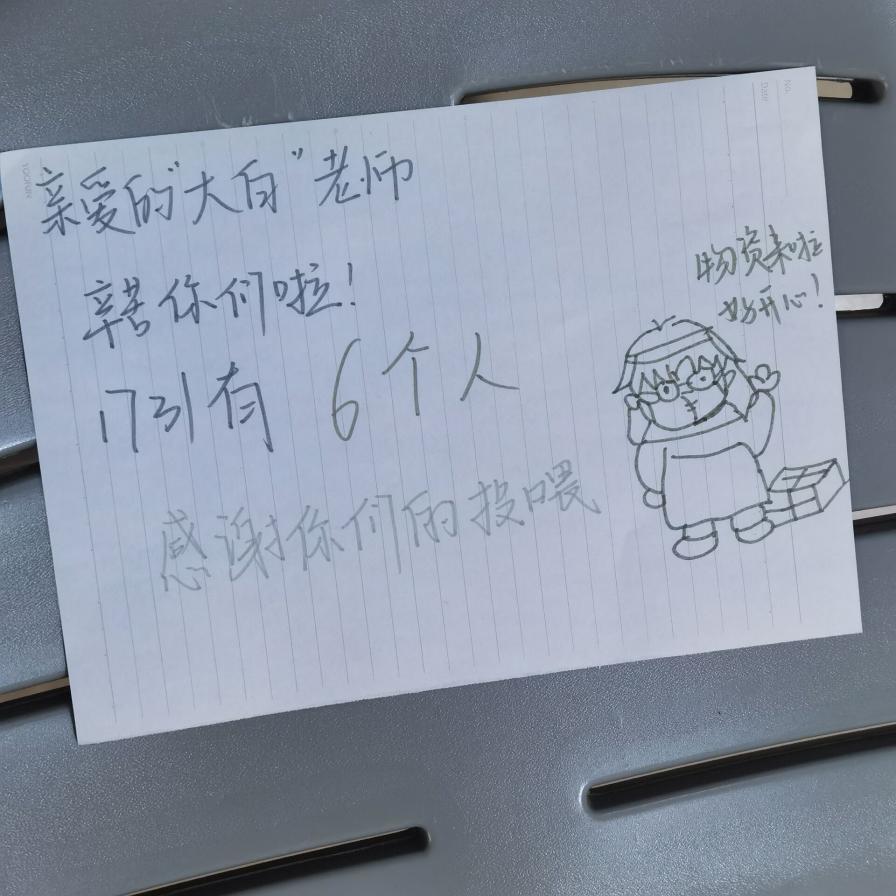 亲爱的"大白"老师
辛苦你们啦!
1731有 6个人
感谢你们的投喂
物资来啦
好开心!
No.
Date